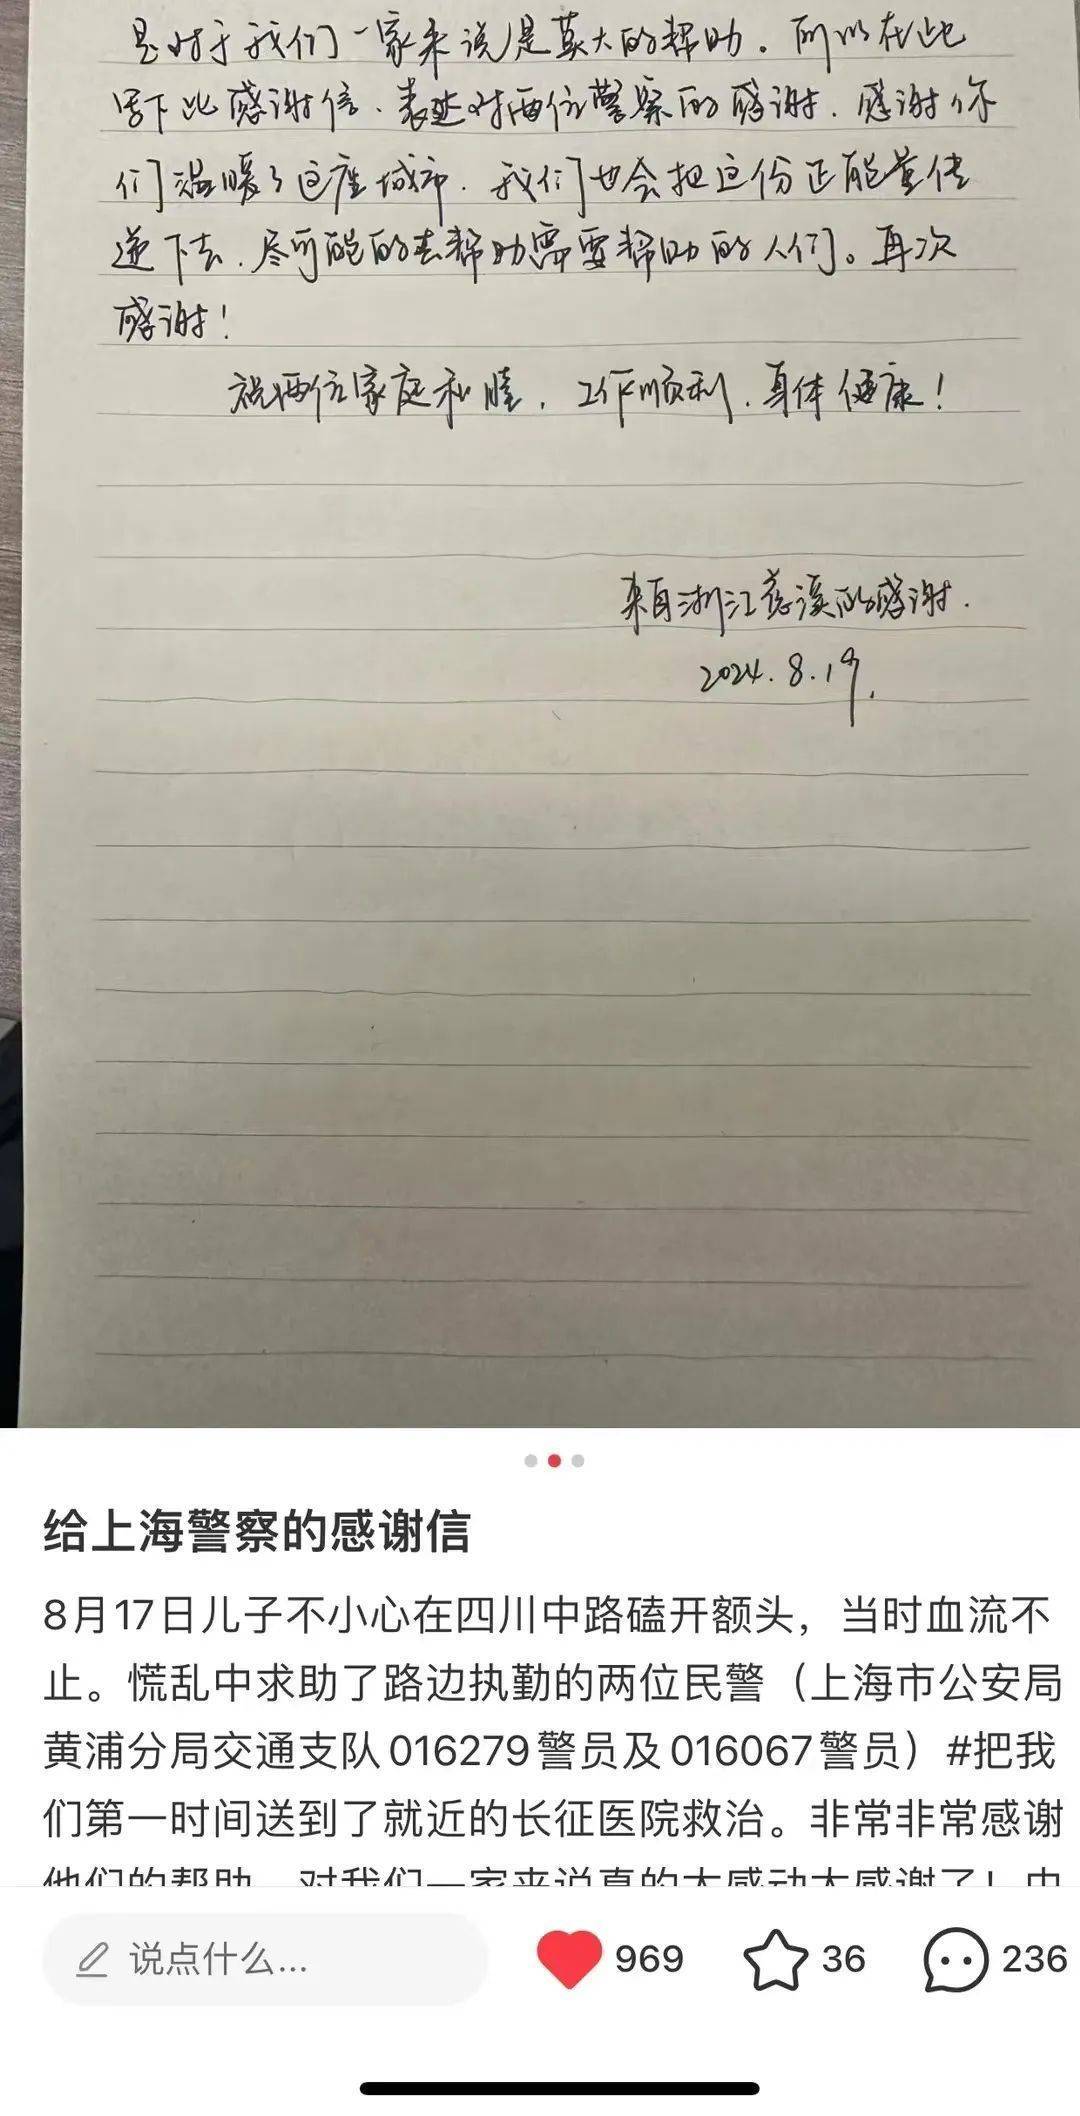 是对于我们一家来说是莫大的帮助。所以在此
写下此感谢信.表达对两位警察的感谢.感谢你
们温暖了这座城市.我们也会把这份正能量传
递下去.尽可能的去帮助需要帮助的人们。再次
感谢!
祝两位家庭和睦.工作顺利.身体健康!
来自浙江慈溪的感谢.
2024.8.19.
给上海警察的感谢信
8月17日儿子不小心在四川中路磕开额头，当时血流不
止。慌乱中求助了路边执勤的两位民警（上海市公安局
黄浦分局交通支队016279警员及016067警员）#把我
们第一时间送到了就近的长征医院救治。非常非常感谢
他们的帮助，对我们一家来说真的太感动太感谢了！
说点什么...
969
36
236